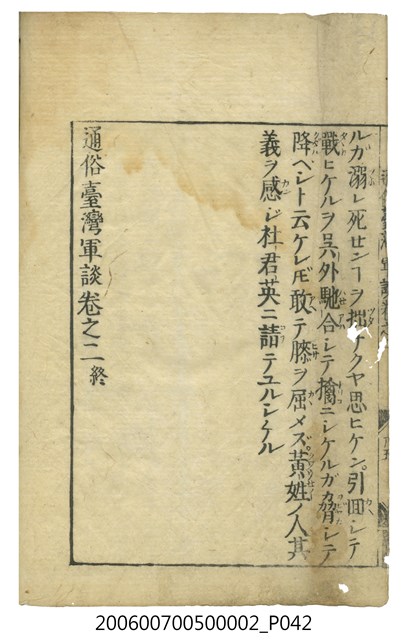 ルガ溺レ死センヿヲ拙ナクヤ思ヒケン引回シテ
戰ヒケルヲ呉外馳合シテ擒ニシケルガ脅シテ
降ベシト云ケレ𪜈敢テ膝ヲ屈メズ黄姓ノ人其
義ヲ感ジ杜君英ニ請テユルシケル
通俗臺灣軍談卷之二終
200600700500002_P042